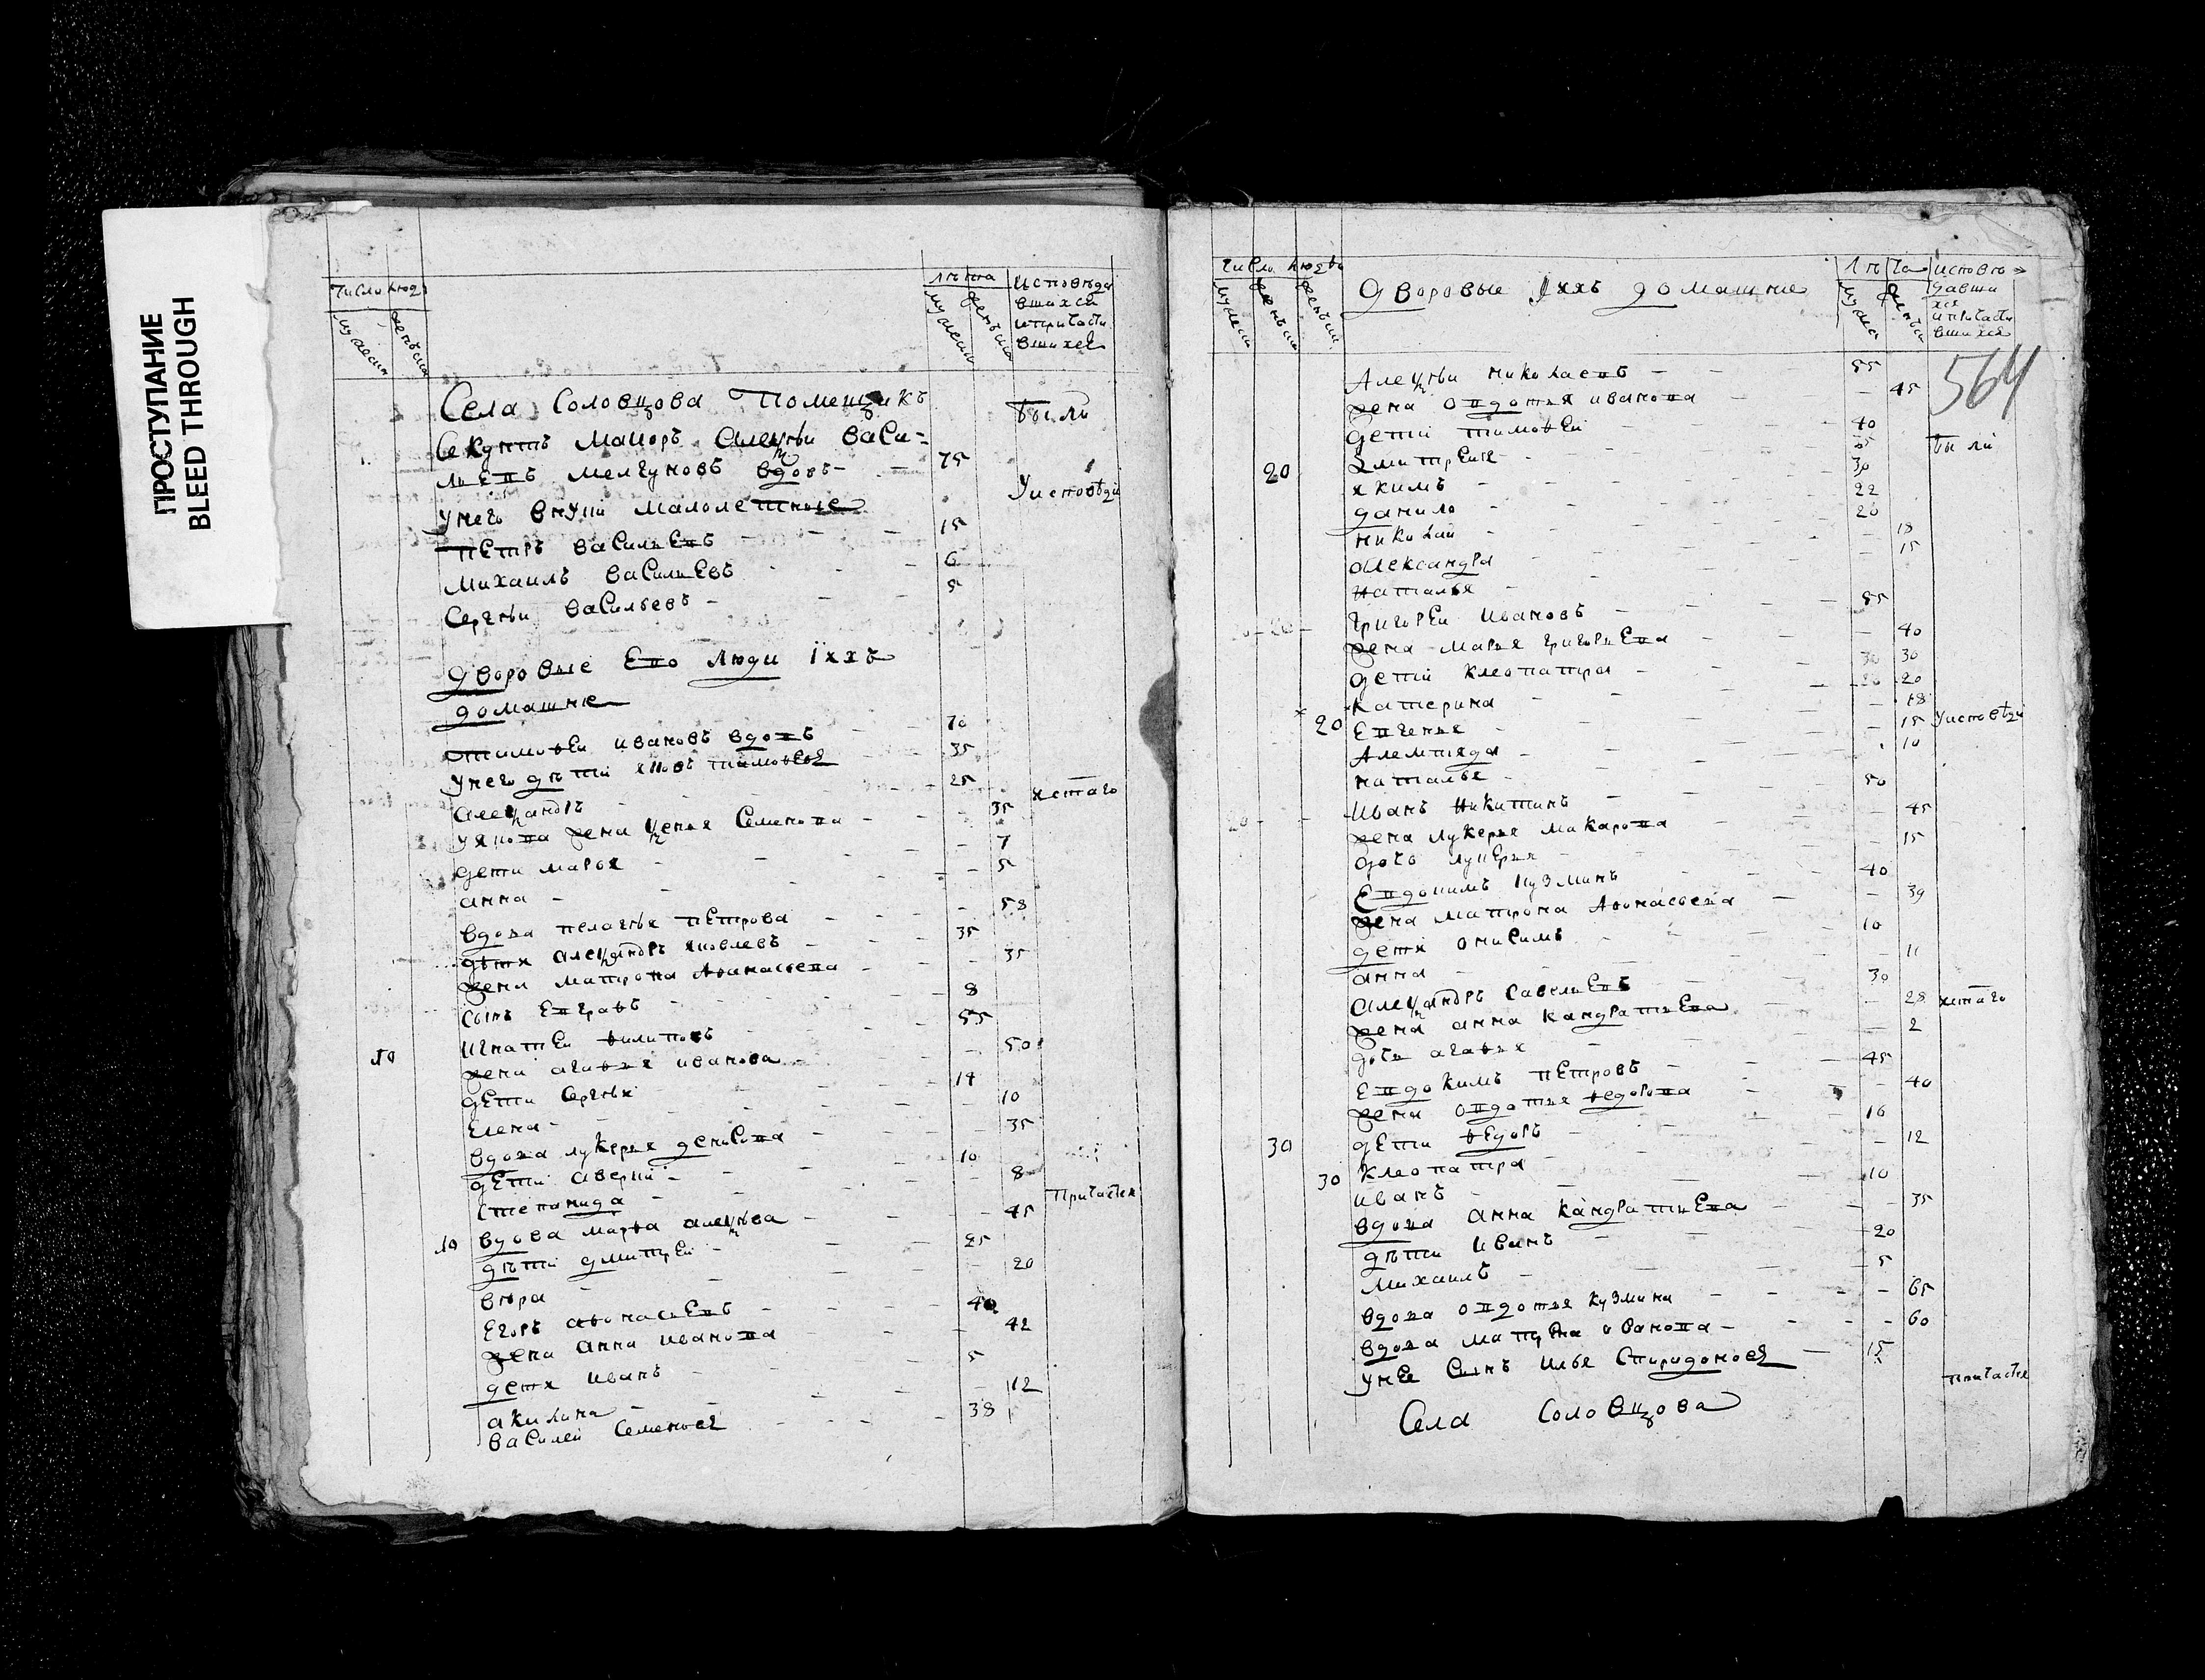 ПРОСТУПАНИЕ
BLEED THROUGH
Число людъ
мужескъ
женъска
лѣта
мужескъ
женъска
исповѣда
вшихся
и причасти
вшихся
Села Соловцова Помещикъ
Секунтъ Маиоръ Алеѯѣи Васи-
лиевъ Мелгуновъ вдовъ - 75
были
У исповѣди
У него внуци малолетные
Петръ Васильевъ - 15
Михаилъ Василиевъ - 6
Сергѣи Васильевъ - 5
Дворовые Ево люди їхъ
домашние
Тимоѳеи ивановъ вдовъ 70
У него дѣти яковъ тимоѳевъ 35
Алеѯандръ 25
хстаго
У якова жена ѯенья Семенова 35
дети марья 7
анна - 5
вдова пелагѣя петрова 58
дѣтя алеѯандръ яковлевъ 35
жена матрона Аѳанасьева 35
сынъ Евграѳъ 8
10 игнатеи ѳилиповъ 55
жена агаѳья иванова 50
дети сергѣи 14
Елена - 10
вдова лукерья денисова 35
дети аверїи 10
степанида 8
причастия
10 вдова марѳа алеѯѣва 45
дѣтї дмитреи 25
вѣра 20
Егоръ аѳонасьевъ 40
жена анна иванова 42
детя иванъ 5
акилина - 12
василеи семеновъ 38
Число людъ
мужеск
женъскъ
Дворовые їхъ домашние
лѣ та
мужеск
исповѣ
давши
хся
и причасти
вшихся
564
Алеѯѣи николаевъ - - 55
жена овдотья иванова - 45
дети тимоѳеи 40
были
20 дмитреи 35
якимъ 30
данило 22
николаи 20
александра 18
наталья 15
григореи ивановъ 55
жена марья григорьева 40
дети клеопатра 30
катерина 20
20 Евгенья 18
У исповѣди
Алемпияда 15
наталья 10
иванъ никитинъ 50
жена лукерья макарова 45
дочь лукерья 15
Евдокимъ кузминъ 40
жена матрона Аѳонасьева 39
детя онисимъ 10
анна 11
алеѯандръ савельевъ 30
жена анна кандратьева 28
хстаго
дочь агаѳья 2
Евдокимъ петровъ 45
жена овдотья ѳедорова 40
30 дети ѳедоръ 16
30 клеопатра 12
иванъ 10
вдова анна кандратьева 35
дѣти иванъ 20
михаилъ 5
вдова овдотья кузмина 65
вдова матрона иванова - 60
У неё сынъ илья спиридоновъ 15
причастия
Села Соловцова